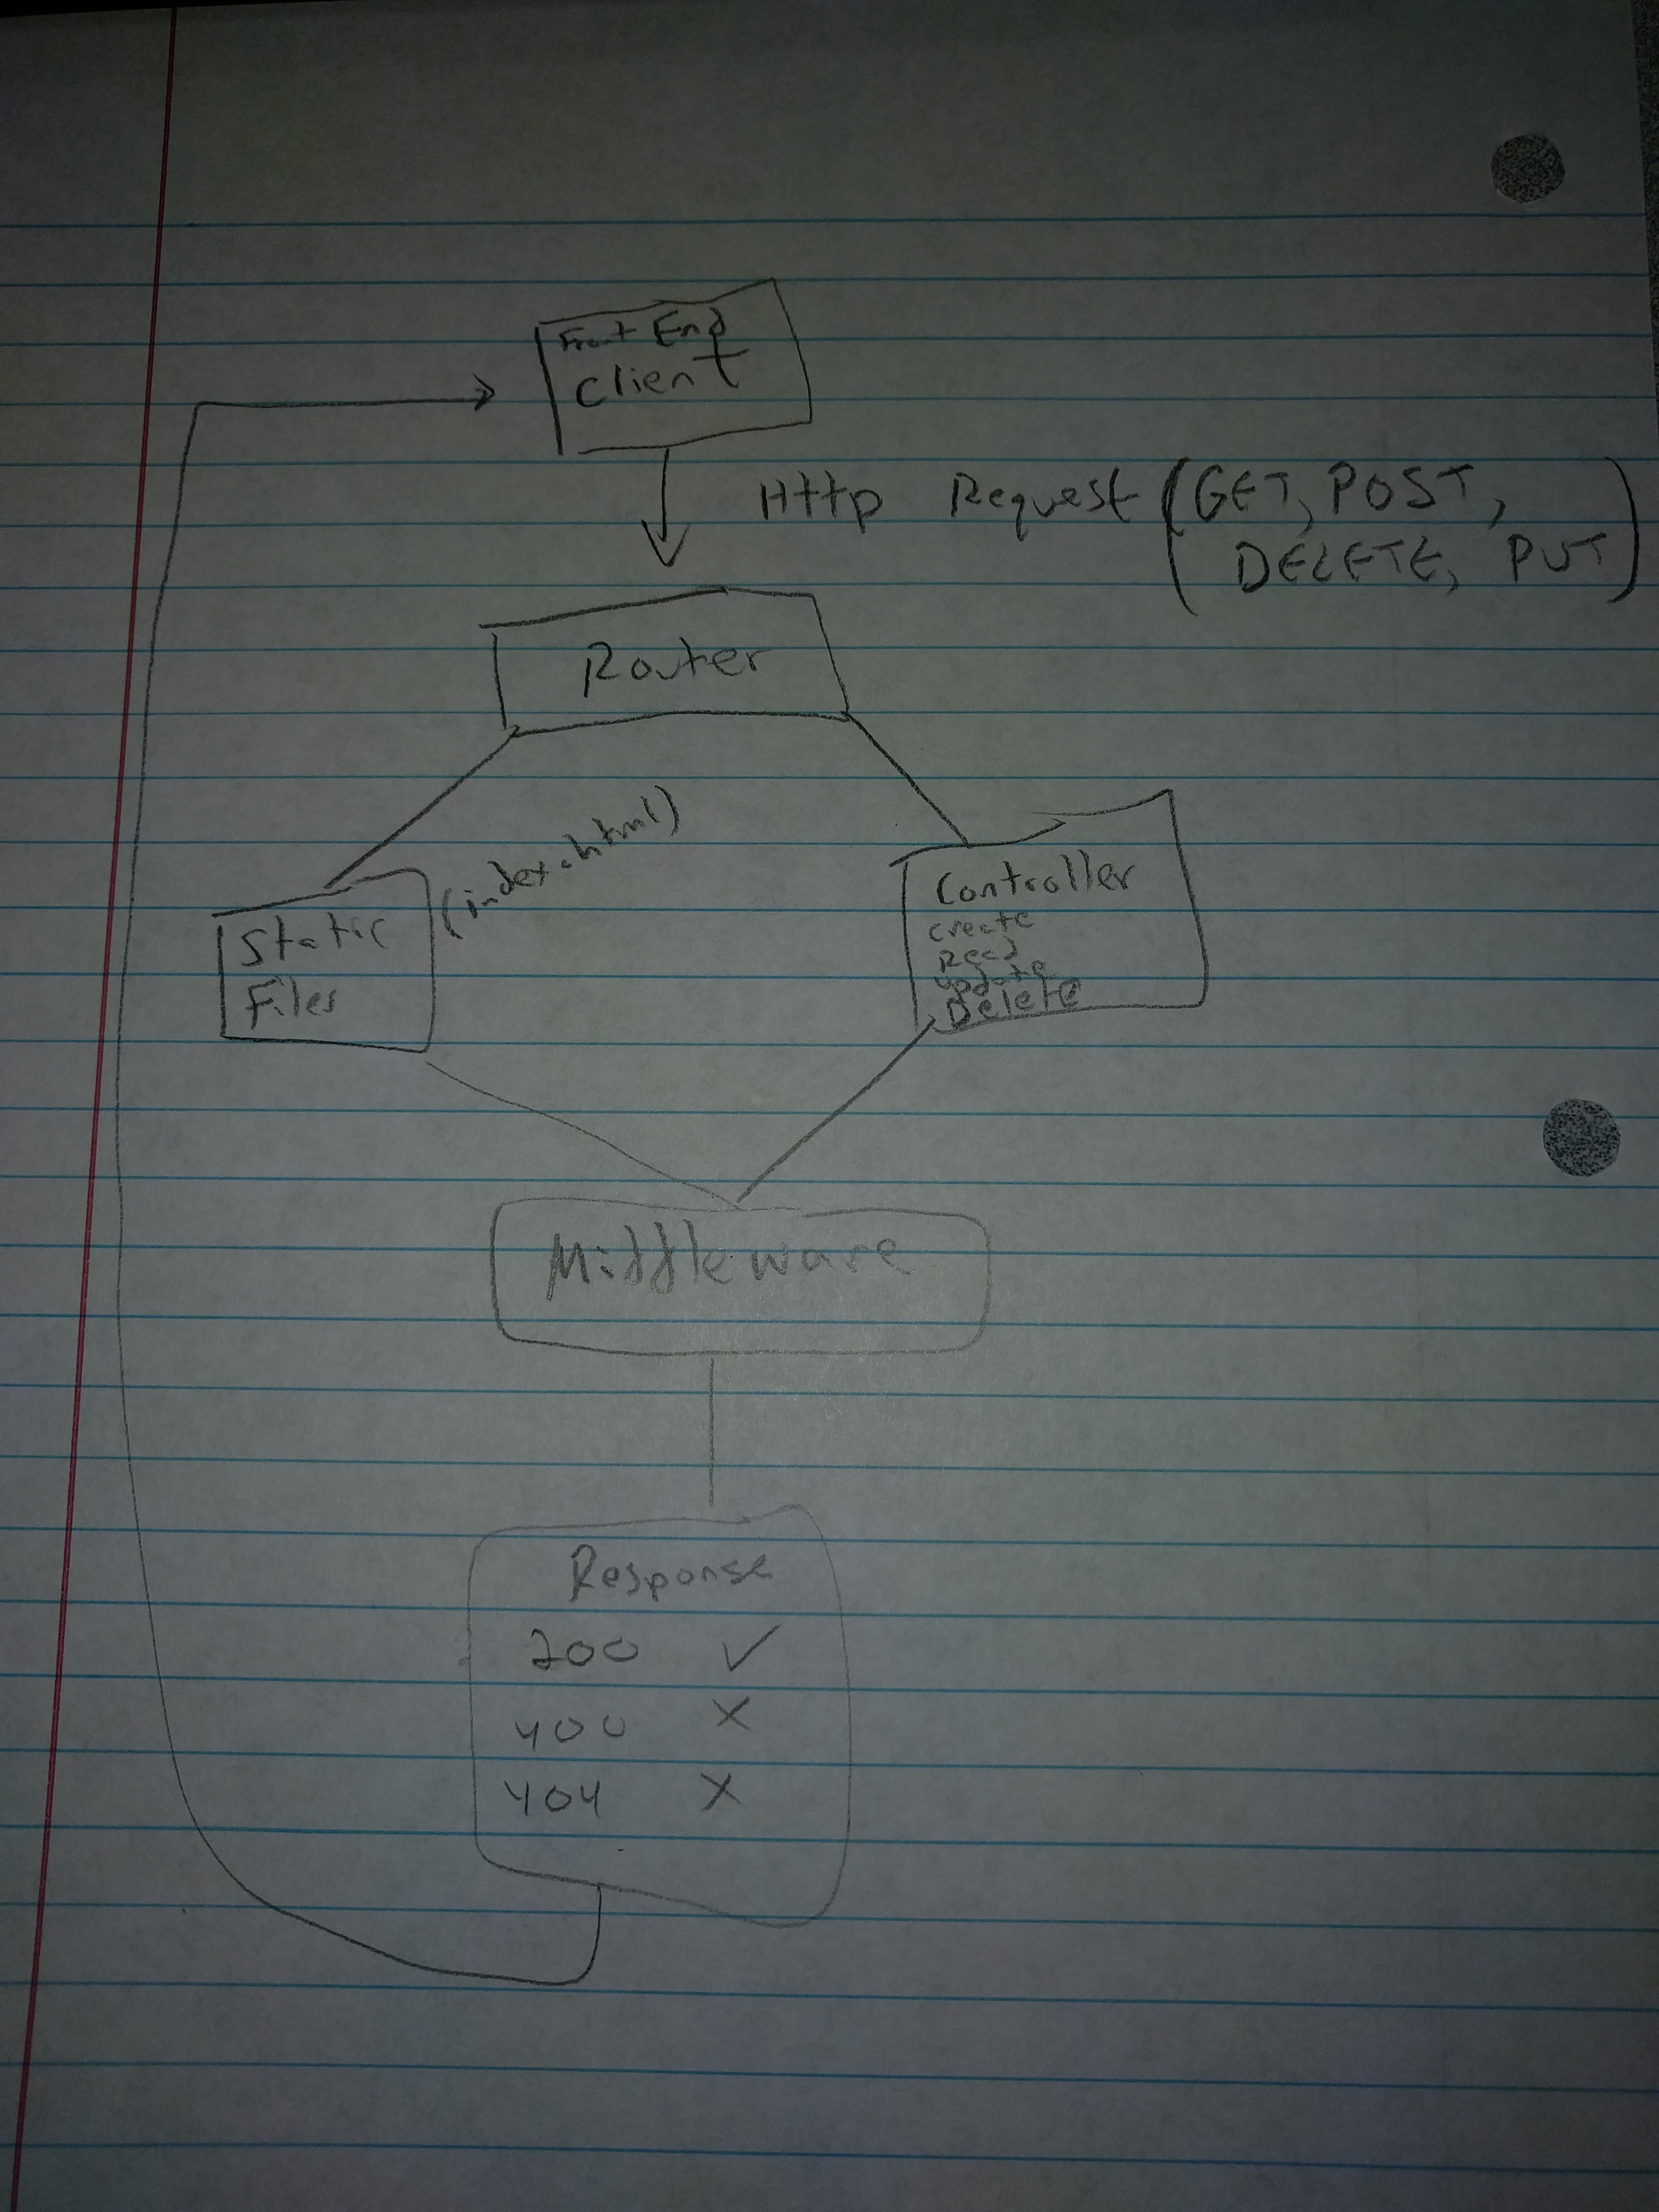 Front End
Client
Http Request (GET, POST,
DELETE, PUT)
Router
(index.html)
Static
Files
Controller
create
Read
update
Delete
Middleware
Response
200 ✓
400 X
404 X